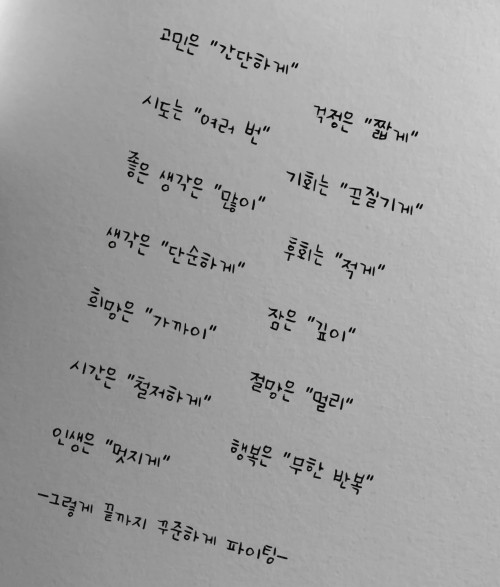 고민은 "간단하게"
걱정은 "짧게"
시도는 "여러 번"
기회는 "끈질기게"
좋은 생각은 "많이"
후회는 "적게"
생각은 "단순하게"
잠은 "깊이"
희망은 "가까이"
절망은 "멀리"
시간은 "철저하게"
행복은 "무한 반복"
인생은 "멋지게"
-그렇게 끝까지 꾸준하게 파이팅-